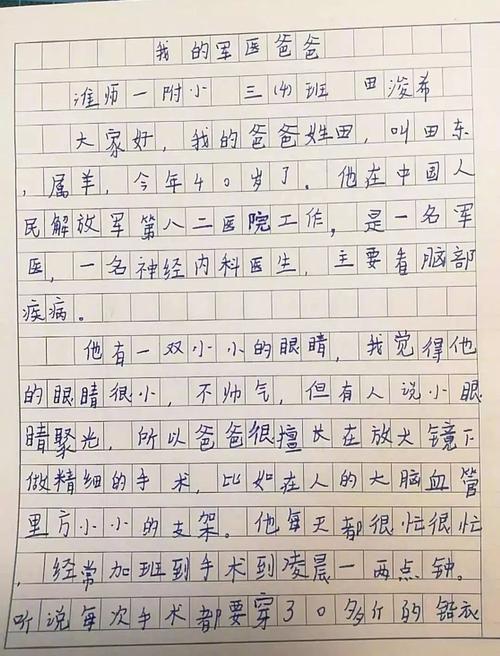 我的军医爸爸
淮师一附小 三(4)班 田浚希
大家好，我的爸爸姓田，叫田东
，属羊，今年40岁了。他在中国人
民解放军第八二医院工作，是一名军
医，一名神经内科医生，主要看脑部
疾病。
他有一双小小的眼睛，我觉得他
的眼睛很小，不帅气，但有人说小眼
睛聚光，所以爸爸很擅长在放大镜下
做精细的手术，比如在人的大脑血管
里方小小的支架。他每天都很忙很忙
，经常加班到手术到凌晨一两点钟。
听说每次手术都要穿30多斤的铅衣